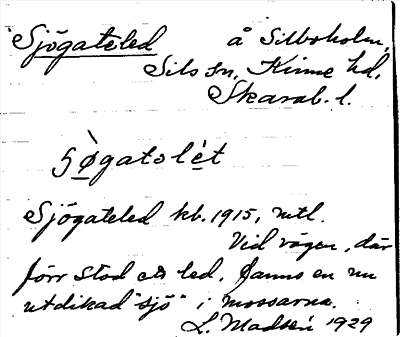 Sjögateled å Silboholm,
Sils sn, Kinne hd,
Skarab. l.
sø̀gatolèt
Sjögateled kb. 1915, mtl.
Vid vägen, där
förr stod ett led, fanns en nu
utdikad "sjö" i mossarna.
L. Madsén 1929